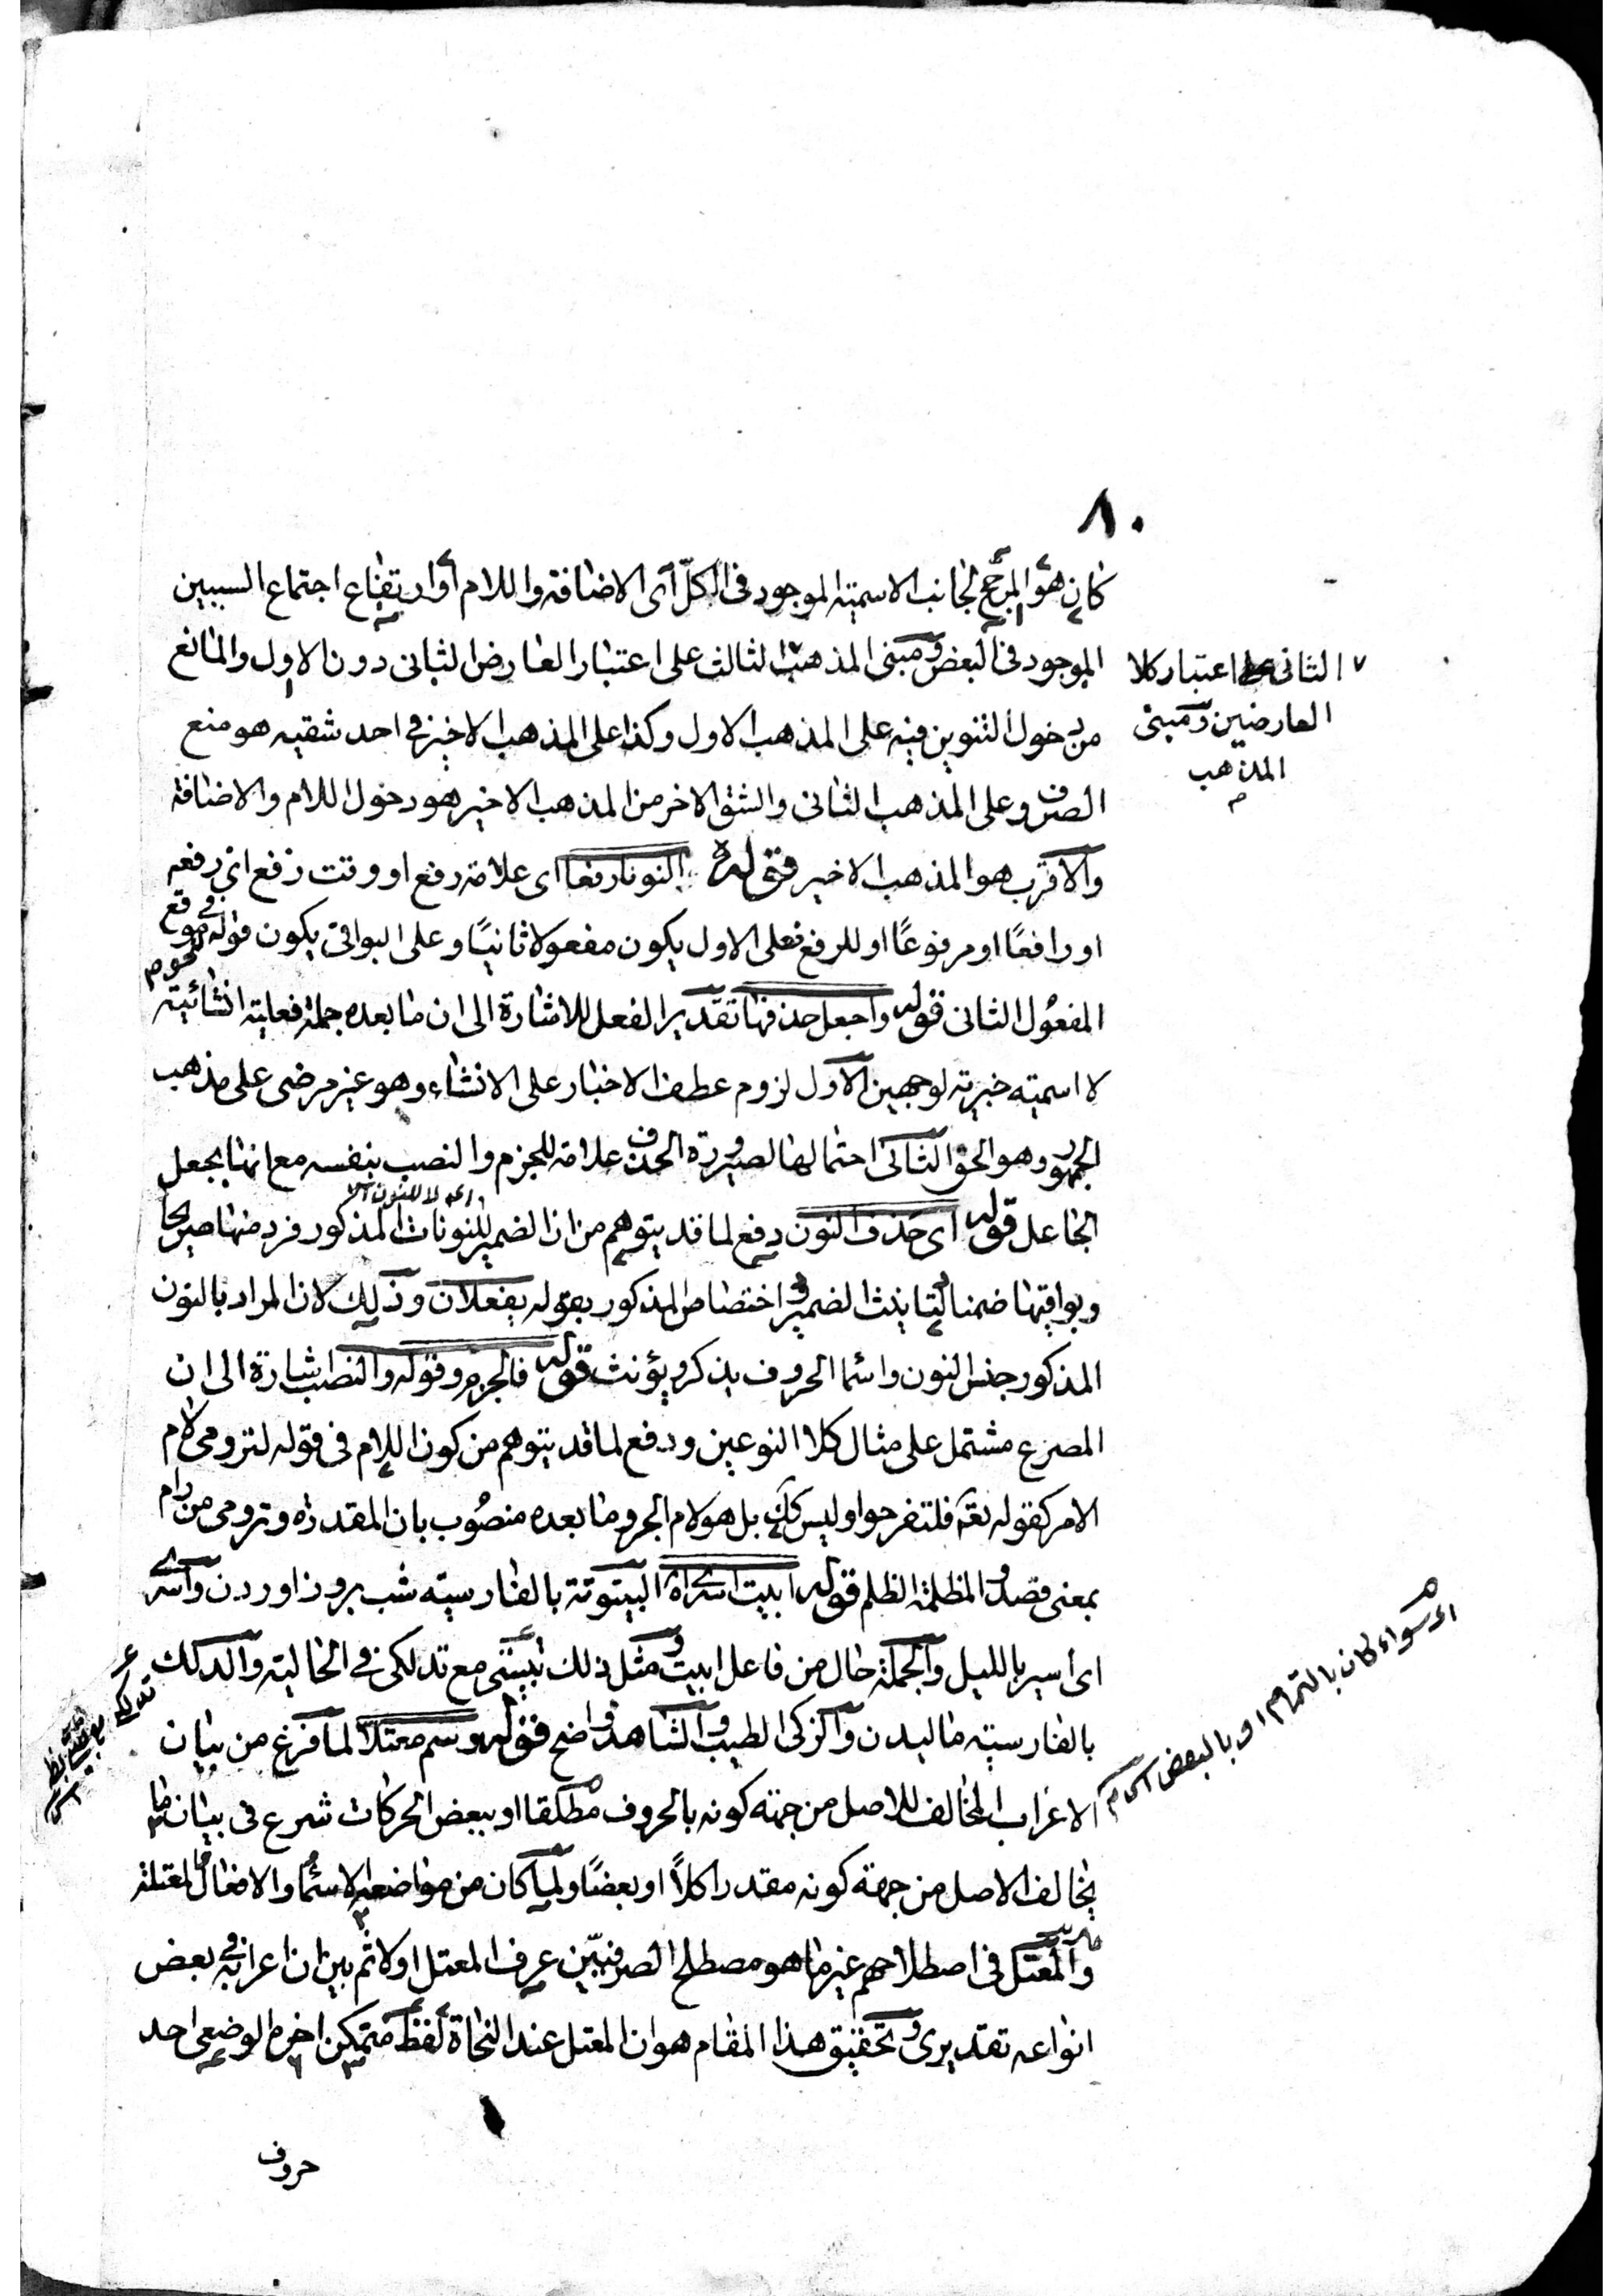 ٨٠
كان هو المرجح لجانب الاسمية الموجود فى الكلّ اى الاضافة واللام او ارتفاع اجتماع السببين
الموجود فى البعض ومبنى المذهب الثالث على اعتبار العارض الثانى دون الاول والمانع
من دخول التنوين فيه على المذهب الاول وكذا على المذهب الاخير فى احد شقيه هو منع
الصرف وعلى المذهب الثانى والشق الاخر من المذهب الاخير هو دخول اللام والاضافة
والاقرب هو المذهب الاخير قوله النونا رفعا اى علامة رفع او وقت رفع اى رفعه
او رافعًا او مرفوعًا او للرفع فعلى الاول يكون مفعولا ثانيًا وعلى البواقى يكون قوله لنحو م فى موقع
المفعُول الثانى قوله واجعل حذفها تقدير الفعل للاشارة الى ان ما بعده جملة فعلية انشائية
لا اسمية خبرية لوجهين الاول لزوم عطف الاخبار على الانشاء وهو غير مرضى على مذهب
الجمهور وهو الحق الثانى احتمالها لصيرورة الحذف علامة للجزم والنصب بنفسه مع انها بجعل
الجاعل قوله اى حذف النون دفع لما قد يتوهم من ان الضمير للنونات المذكور فرد منها صريحا
وبواقيها ضمنا لتانيث الضمير واختصاص المذكور بقوله يفعلان وذلك لان المراد بالنون
المذكور جنس النون واسما الحروف يذكر ويؤنث قوله فالجزم وقوله والنصب اشارة الى ان
المصرع مشتمل على مثال كلا النوعين ودفع لما قد يتوهم من كون اللام فى قوله لترومى لام
الامر كقوله تعه فلتفرحوا وليس كك بل هو لام الجر وما بعده منصُوب بان المقدرة وترومى من رام
بمعنى قصد والمظلمة الظلم قوله ابيت اسرى اه البيتوتة بالفارسية شب بروز اوردن واسرى
اى اسير بالليل والجملة حال من فاعل ابيت ومثل ذلك تبيتى مع تدلكى فى الحالية والدلك
بالفارسية ماليدن والزكى الطيب والشاهد واضح قوله وسم معتلا لما فرغ من بيان
الاعراب المخالف للاصل من جهة كونه بالحروف مطلقا او ببعض الحركات شرع فى بيان ما
يخالف الاصل من جهة كونه مقدرا كلاً او بعضًا ولما كان من مواضعه الاسما والافعال المعتلة
والمعتل فى اصطلاحهم غير ما هو مصطلح الصرفيّين عرف المعتل اولا ثم بين ان اعرابه فى بعض
انواعه تقديرى وتحقيق هذا المقام هو ان المعتل عند النحاة لفظ متمكن اخره الوضعى احد
حروف
٧ الثانى على اعتبار كلا
العارضين ومبنى
المذهب
م
اى سواء كان بالتمام او بالبعض